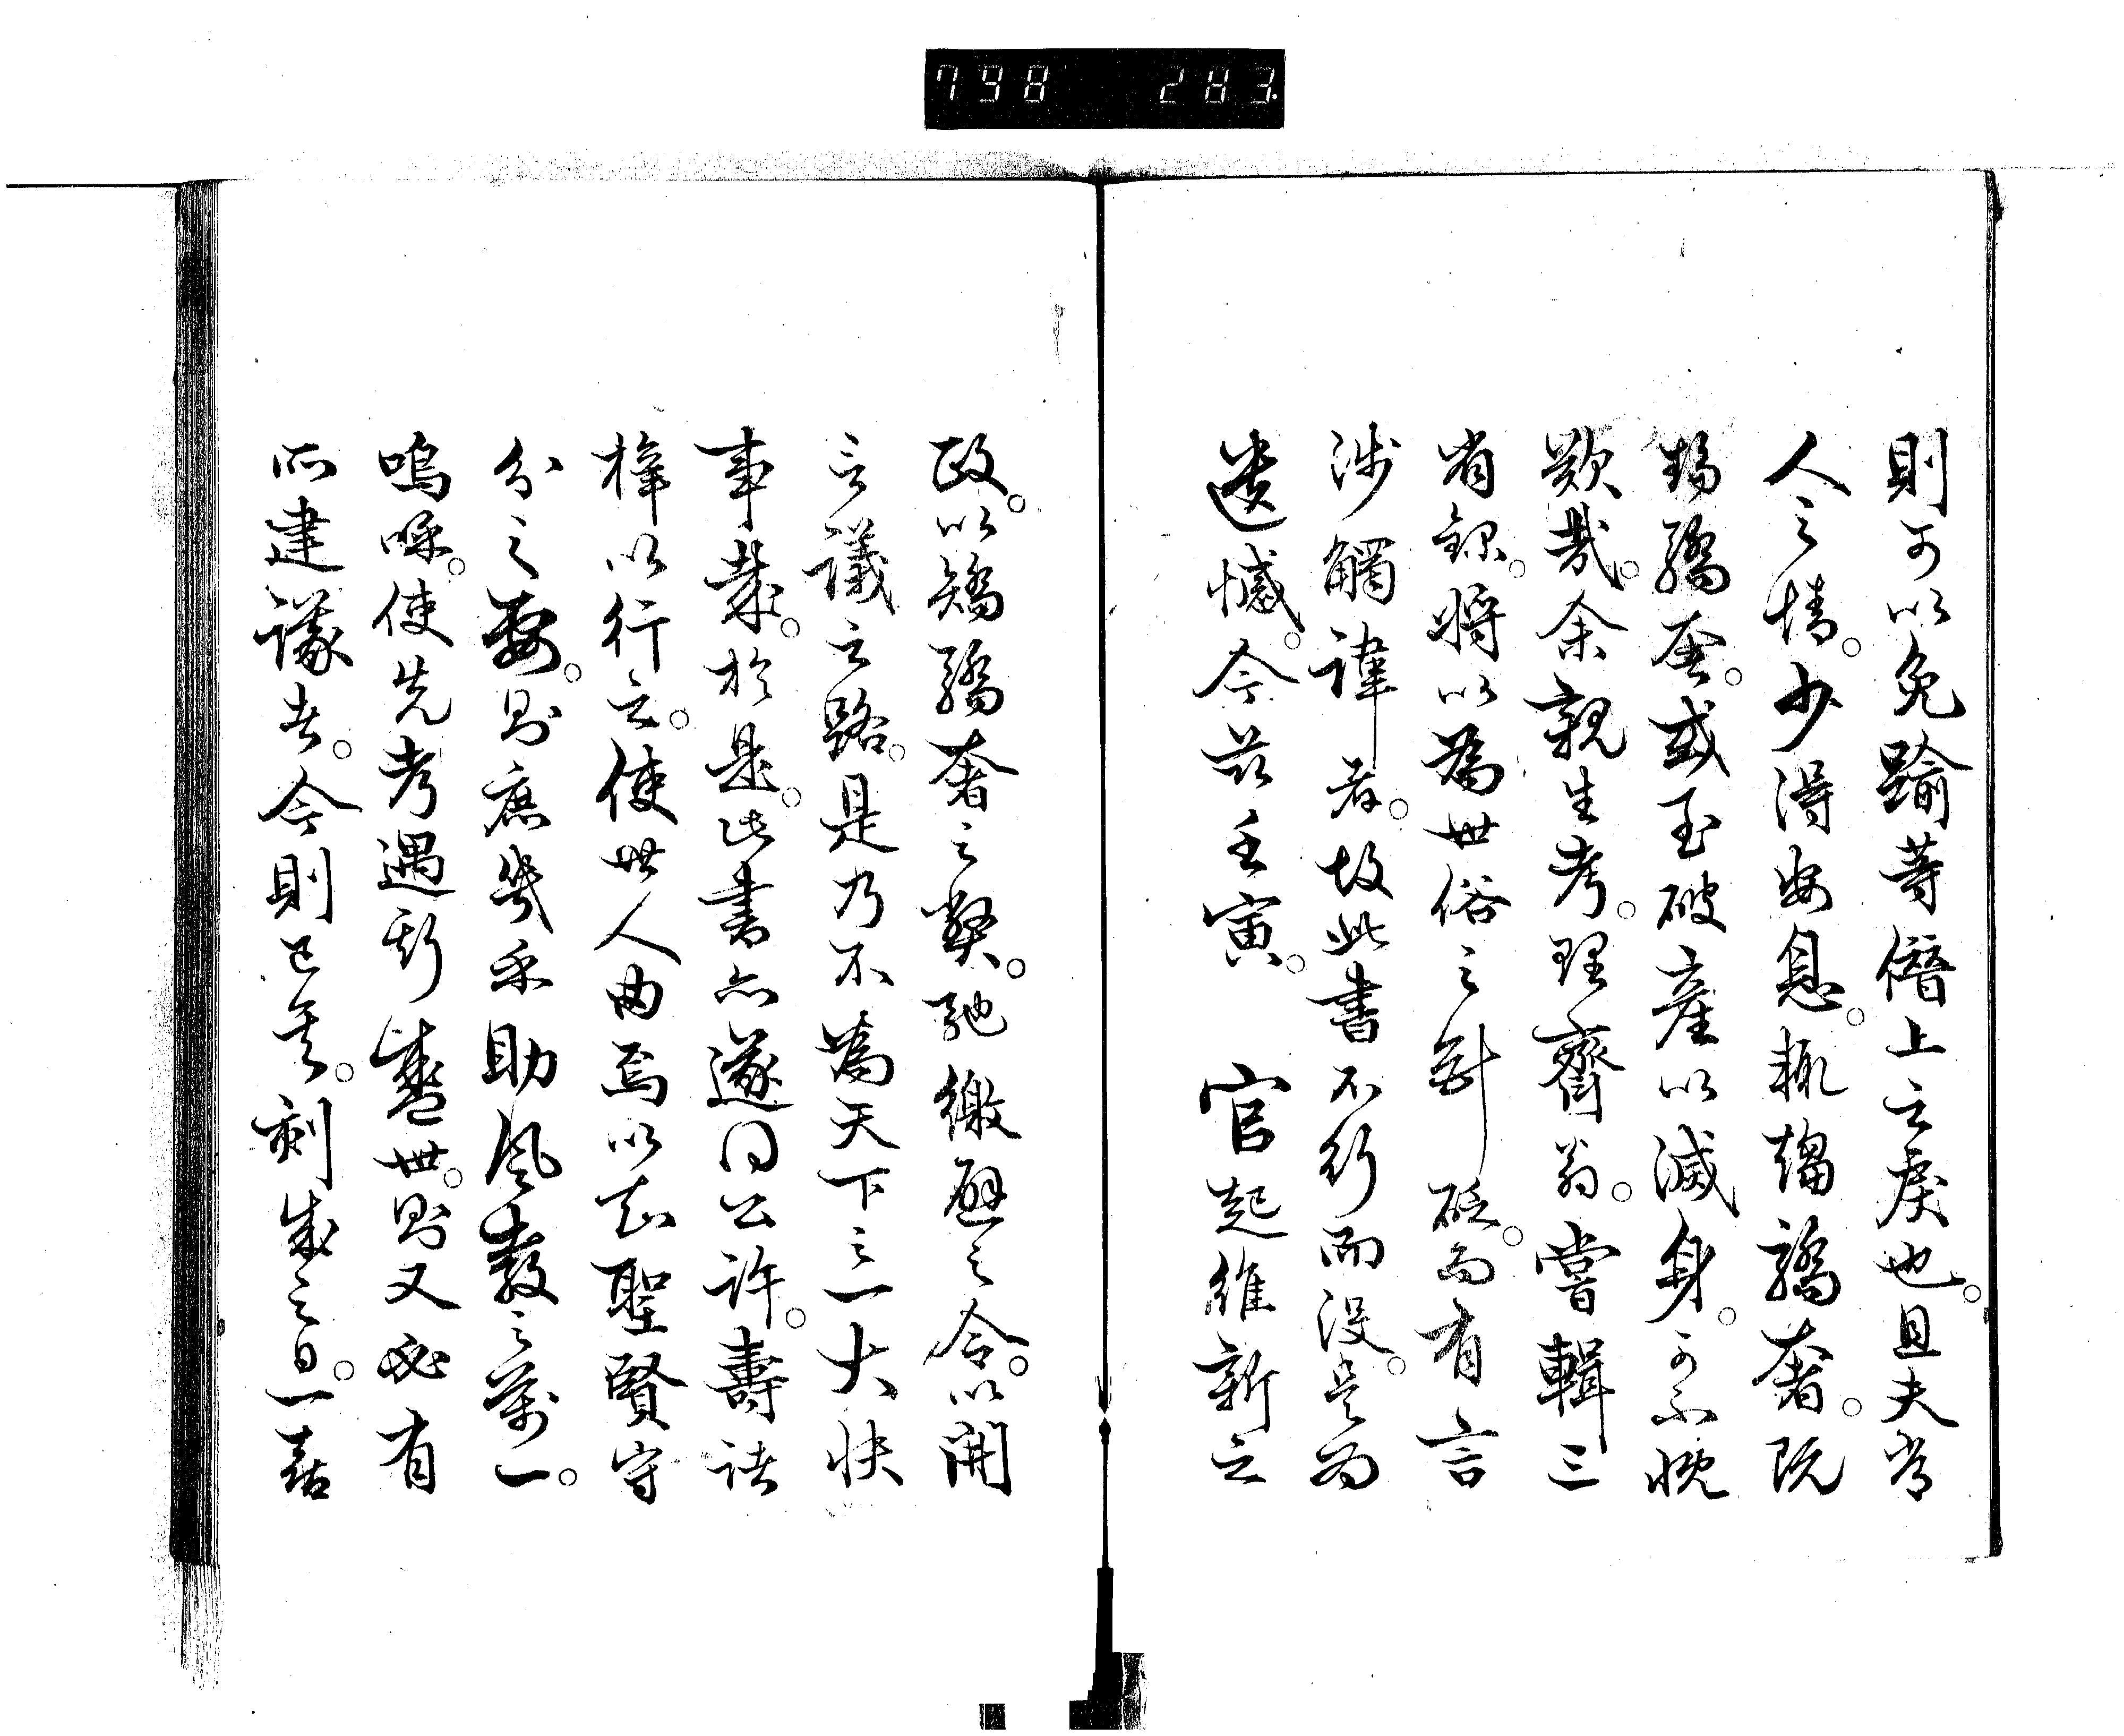 798 283
則可以免踰等僭上之戻也。且夫常
人之情。少得安息。輒蹈驕奢。既
蹈驕奢。或至破產以滅身。可不慨
歎哉。余親生考。理齊翁。嘗輯三
省錄。將以為世俗之針砭。而有言
涉觸諱者。故此書不行而没。是為
遺憾。今茲壬寅。 官起維新之
政。以矯驕奢之弊。弛繳歷之令。以開
言議之路。是乃不為天下之一大快
事哉。於是。此書亦遂同公許。壽諸
梓以行之。使世人由焉以知聖賢守
分之要。則庶幾乎助風教之萬一。
嗚呼。使先考遇斯盛世。則又必有
所建議者。今則已矣。刻成之日。一喜